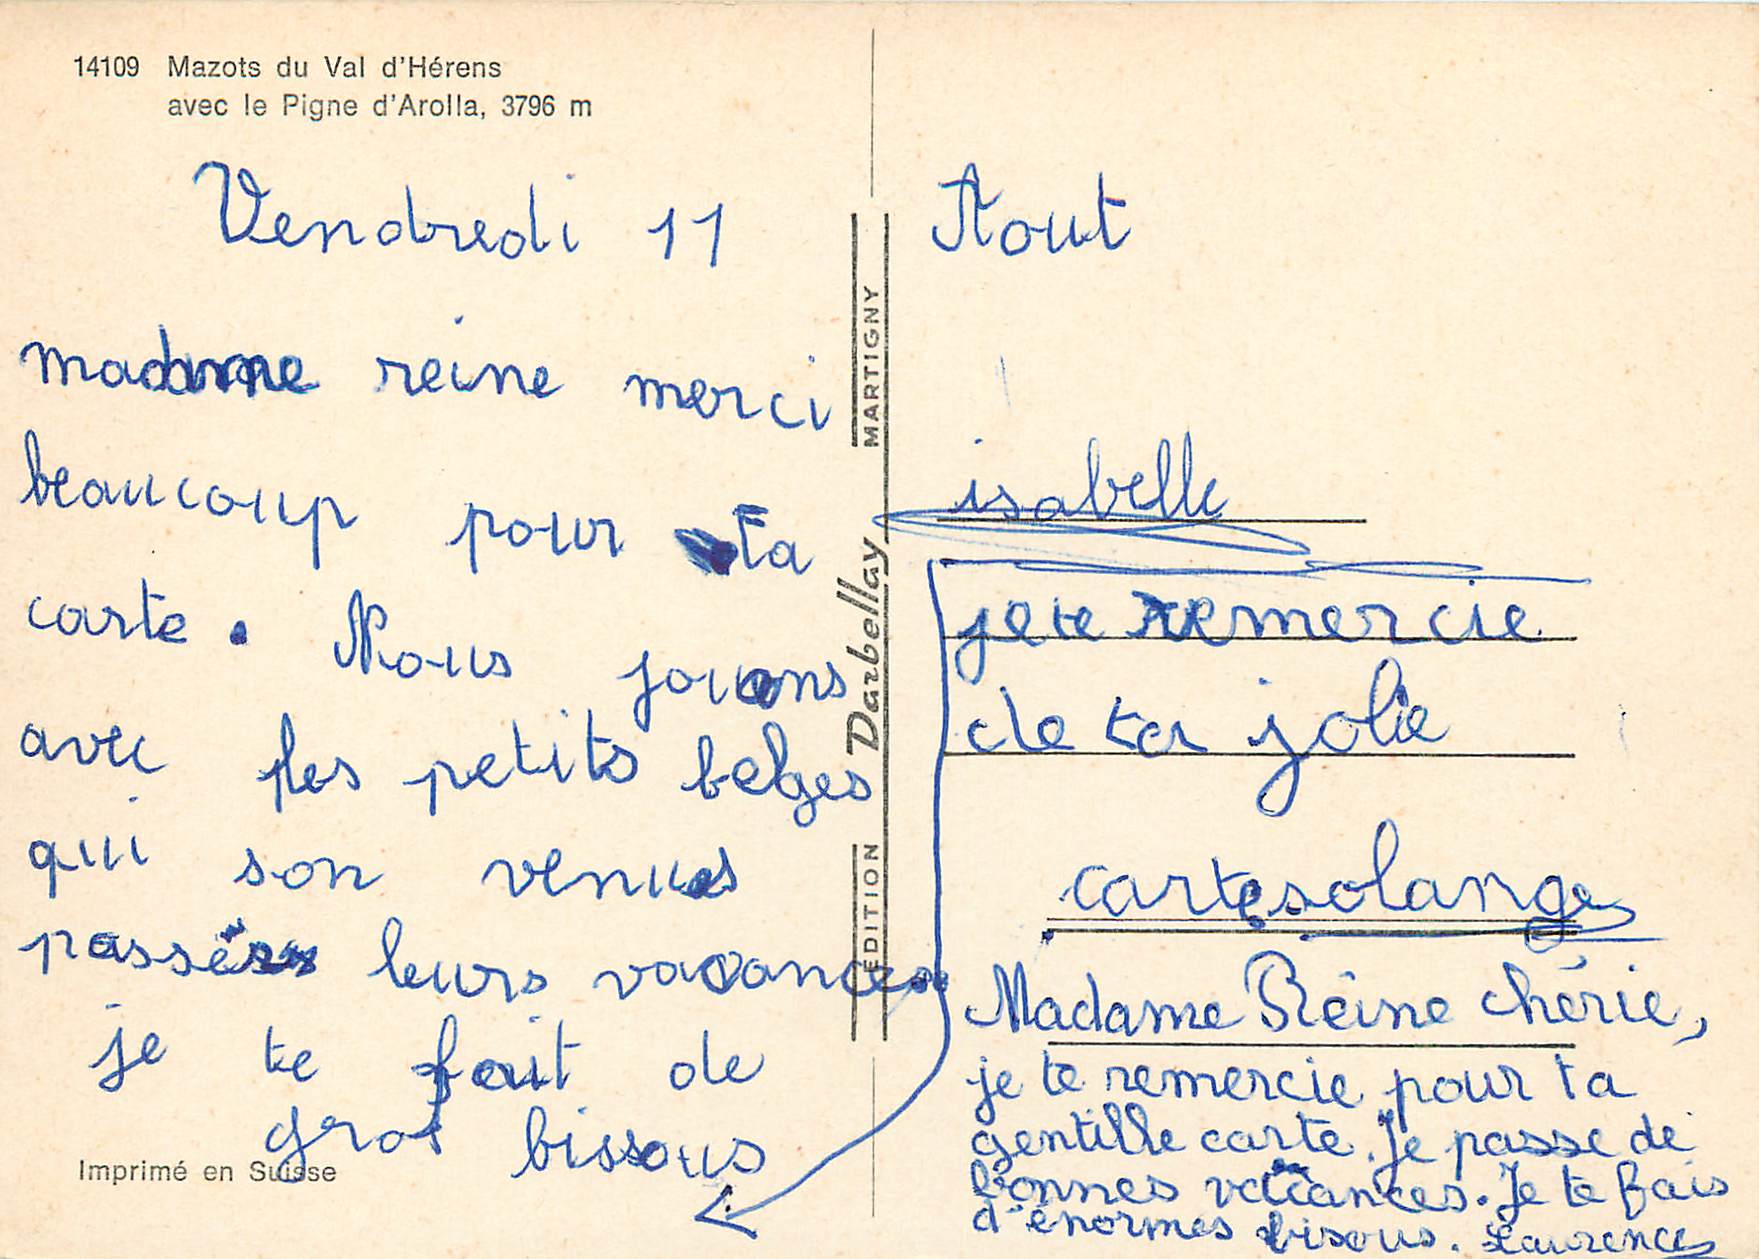 14109 Mazots du Val d'Hérens
avec le Pigne d'Arolla, 3796 m
Vendredi 11 Aout
madame reine merci
beaucoup pour ta
carte. Nous jouons
avec les petits belges
qui son venus
passér leurs vacances
je te fait de
gros bissous
Imprimé en Suisse
EDITION Darbellay MARTIGNY
isabelle
je te remercie
de ta jolie
carte solange
Madame Reine chérie,
je te remercie pour ta
gentille carte. Je passe de
bonnes vacances. Je te fais
d'énormes bisous. Laurence